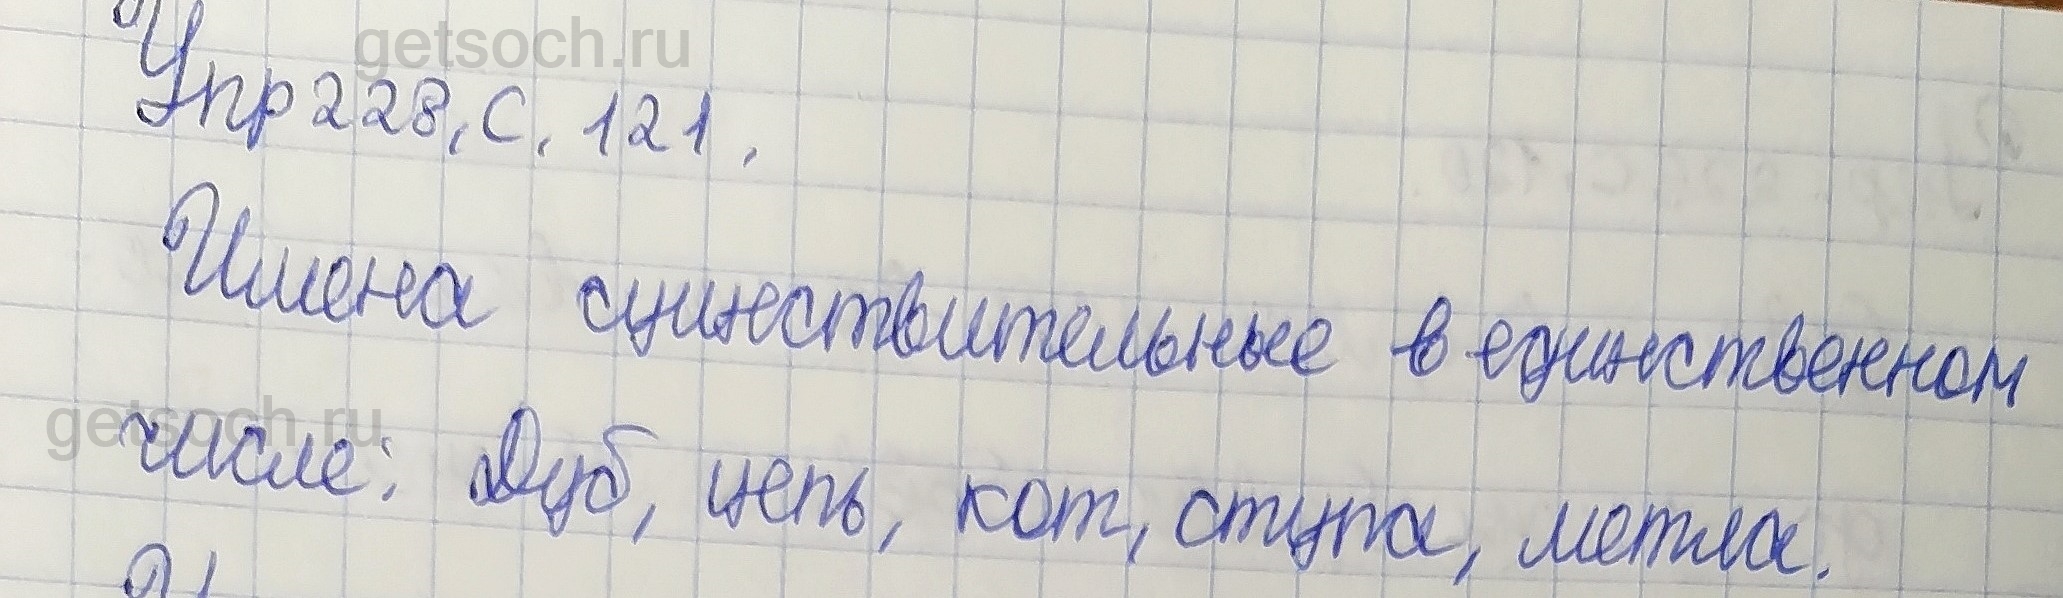 getsoch.ru
Упр 228, с. 121.
Имена существительные в единственном
getsoch.ru
числе: Дуб, цепь, кот, ступа, метла.